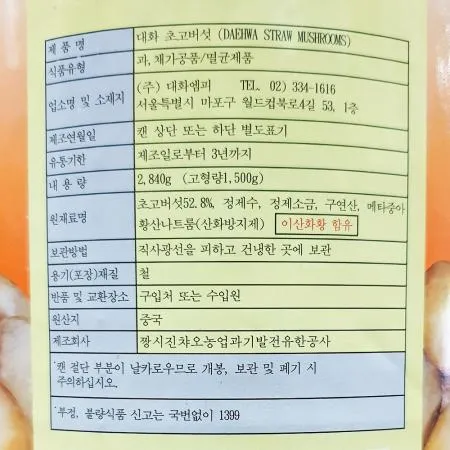 제 품 명 대화 초고버섯 (DAEHWA STRAW MUSHROOMS)
식품유형 과, 채가공품/멸균제품
업소명 및 소재지 (주) 대화엠피 TEL. 02) 334-1616
서울특별시 마포구 월드컵북로4길 53, 1층
제조연월일 캔 상단 또는 하단 별도표기
유통기한 제조일로부터 3년까지
내 용 량 2,840g (고형량1,500g)
원재료명 초고버섯52.8%, 정제수, 정제소금, 구연산, 메타중아
황산나트륨(산화방지제) 이산화황 함유
보관방법 직사광선을 피하고 건냉한 곳에 보관
용기(포장)재질 철
반품 및 교환장소 구입처 또는 수입원
원산지 중국
제조회사 짱시진챠오농업과기발전유한공사
*캔 절단 부분이 날카로우므로 개봉, 보관 및 폐기 시
주의하십시오.
*부정, 불량식품 신고는 국번없이 1399